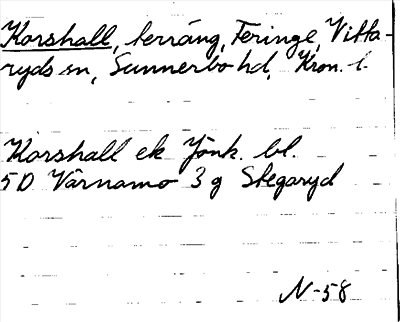 Korshall, terräng, Feringe, Vitta-
ryds sn, Sunnerbo hd, Kron. l.
Korshall ek Jönk. bl.
5D Värnamo 3g Skegaryd
N-58